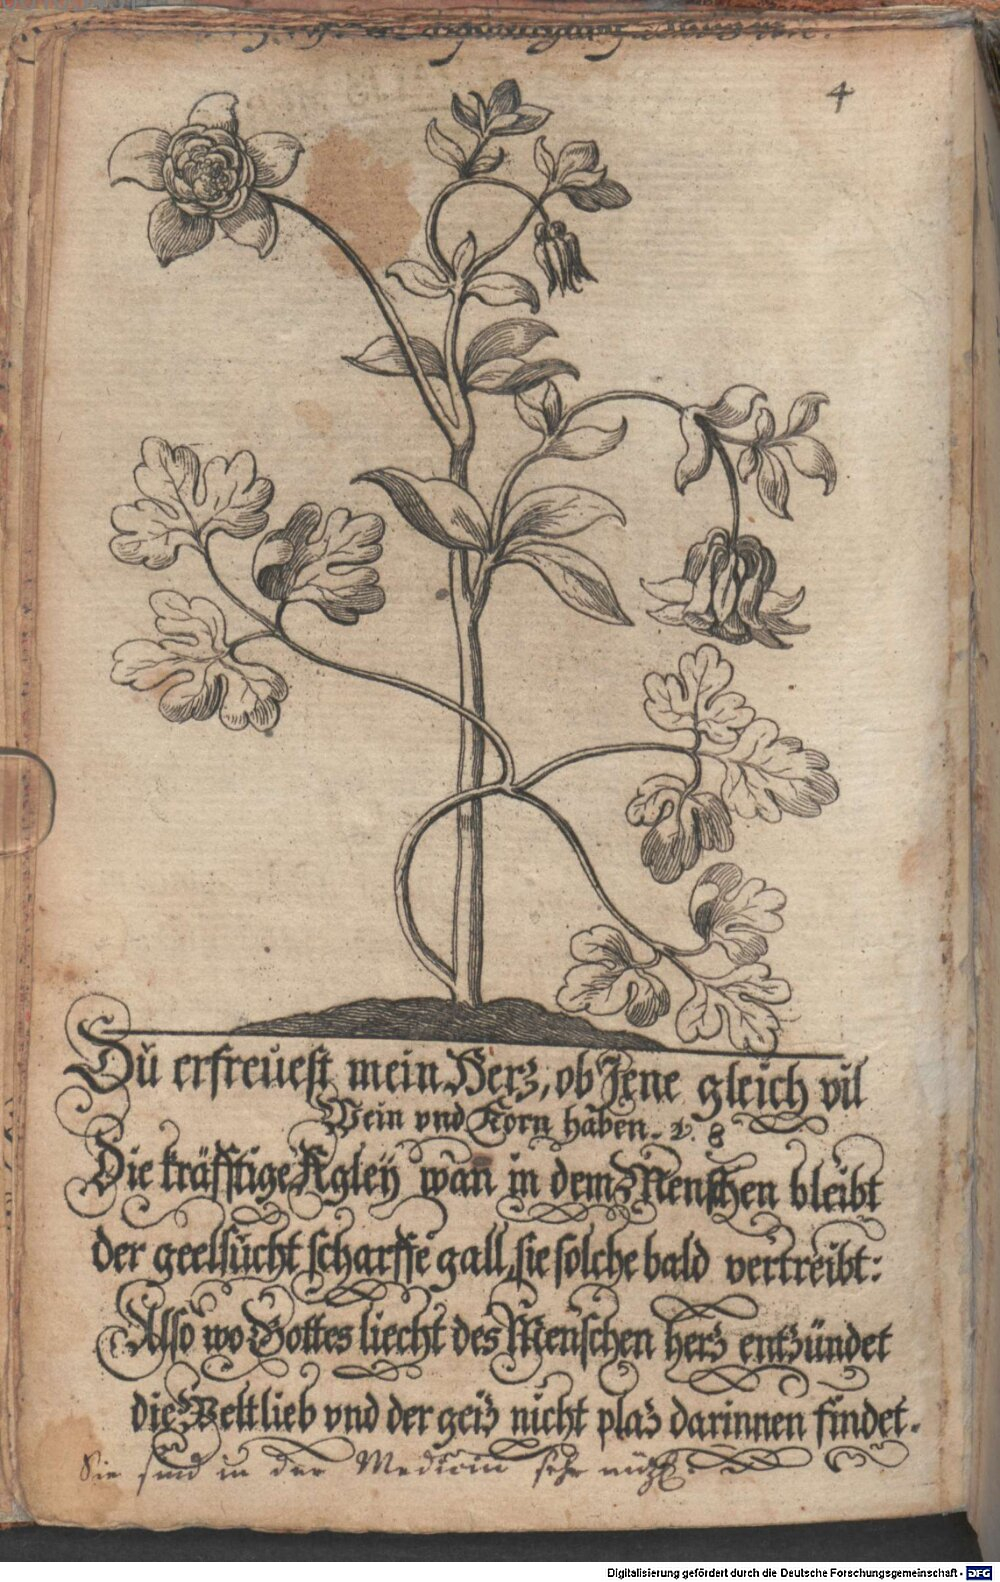 4
Du erfreuest mein Herz, ob Jene gleich vil
Wein vnd Korn haben. v. 8
Die kräfftige Agleÿ wan in dem Menschen bleibt
der geelsucht scharffe gall, sie solche bald vertreibt:
Also wo Gottes liecht des Menschen herz entzündet
die Weltlieb vnd der geiz nicht plaz darinnen findet.
Sie sind in der Medicin sehr
Digitalisierung gefördert durch die Deutsche Forschungsgemeinschaft - DFG